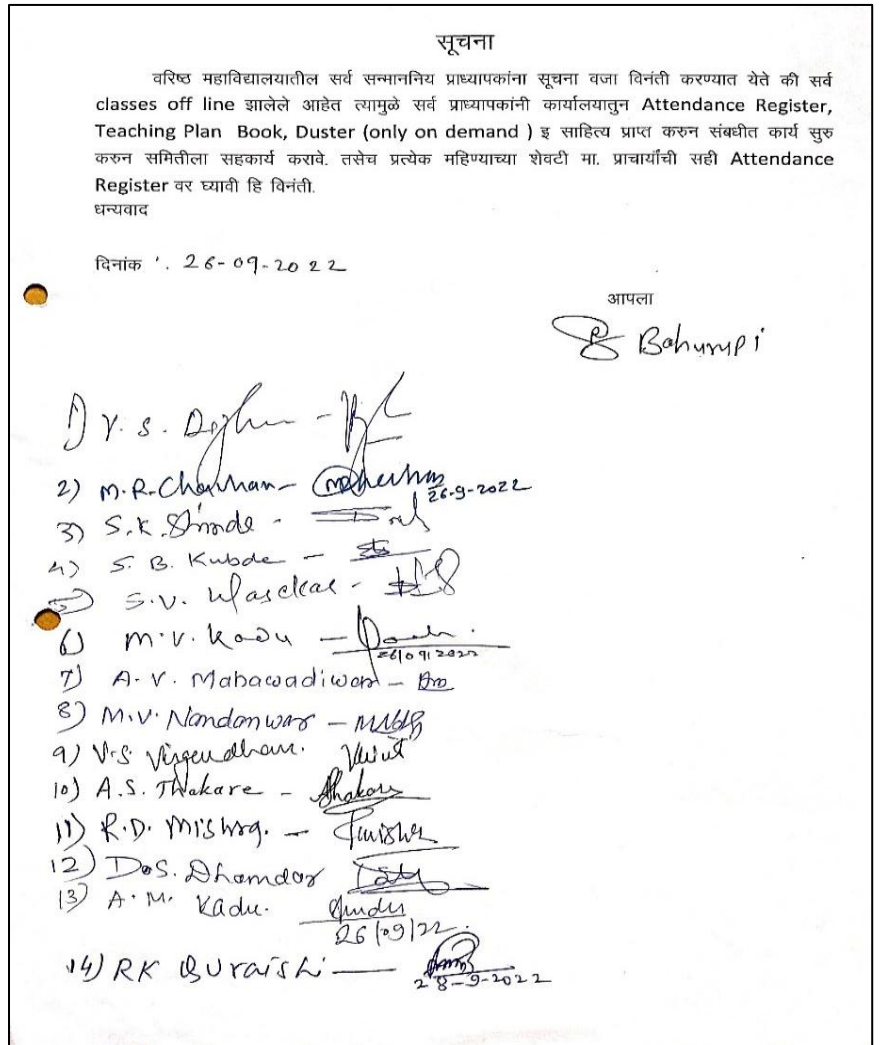 सूचना
वरिष्ठ महाविद्यालयातील सर्व सन्माननिय प्राध्यापकांना सूचना वजा विनंती करण्यात येते की सर्व
classes off line झालेले आहेत त्यामुळे सर्व प्राध्यापकांनी कार्यालयातुन Attendance Register,
Teaching Plan Book, Duster (only on demand ) इ साहित्य प्राप्त करुन संबधीत कार्य सुरु
करुन समितीला सहकार्य करावे. तसेच प्रत्येक महिण्याच्या शेवटी मा. प्राचार्यांची सही Attendance
Register वर घ्यावी हि विनंती.
धन्यवाद
दिनांक : 26-09-2022
आपला
Bahurupi
1) V. S.
2) M.R. Chavhan - 26-9-2022
3) S.K. Shinde -
4) S. B. Kubde -
5) S.V.
6) M.V. Kadu - 26/09/2022
7) A. V. Mahawadiwar -
8) M.V. Nandanwar -
9) V.S.
10) A.S. Thakare - Thakare
11) R.D. Mishra. -
12) D.S. Dhamdar
13) A.M. Kadu.
26/09/22.
14) RK Quraishi -
28-9-2022